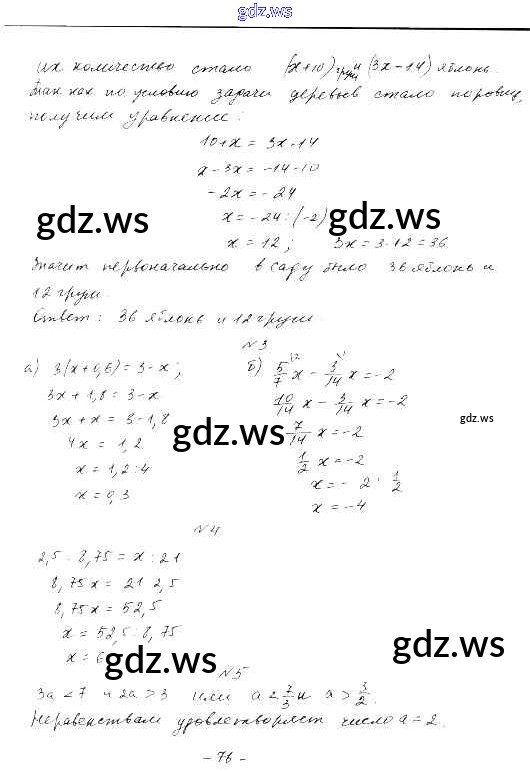 gdz.ws
их количество стало (x+10) груш и (3x-14) яблонь.
Так как по условию задачи деревьев стало поровну,
получим уравнение:
10+x = 3x-14
x-3x = -14-10
-2x = -24
gdz.ws
gdz.ws
x = -24 : (-2)
x = 12; 3x = 3·12 = 36
Значит первоначально в саду было 36 яблонь и
12 груш.
Ответ: 36 яблонь и 12 груш.
№3
а) 3(x+0,6) = 3-x;
3x + 1,8 = 3-x
3x + x = 3-1,8
4x = 1,2
x = 1,2:4
x = 0,3
gdz.ws
б) 5/7 x - 3/14 x = -2
10/14 x - 3/14 x = -2
7/14 x = -2
1/2 x = -2
x = -2 : 1/2
x = -4
gdz.ws
№4
2,5 : 8,75 = x : 21
8,75x = 21·2,5
8,75x = 52,5
x = 52,5 : 8,75
x = 6
gdz.ws
gdz.ws
№5
3a < 7 и 2a > 3 или a < 7/3 и a > 3/2.
Неравенствам удовлетворяет число a = 2.
- 76 -